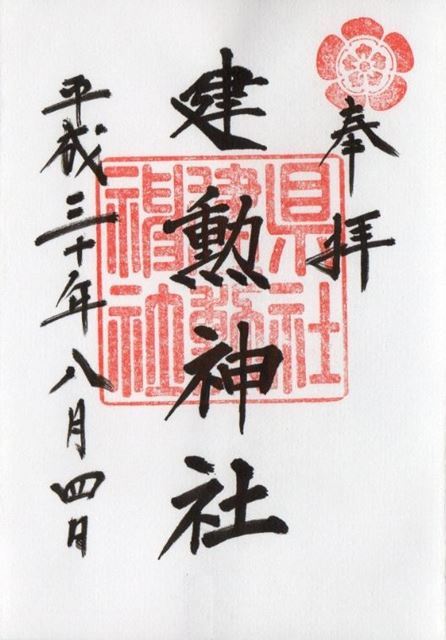 奉拝
県社
建勲
神社
建勲神社
平成三十年八月四日